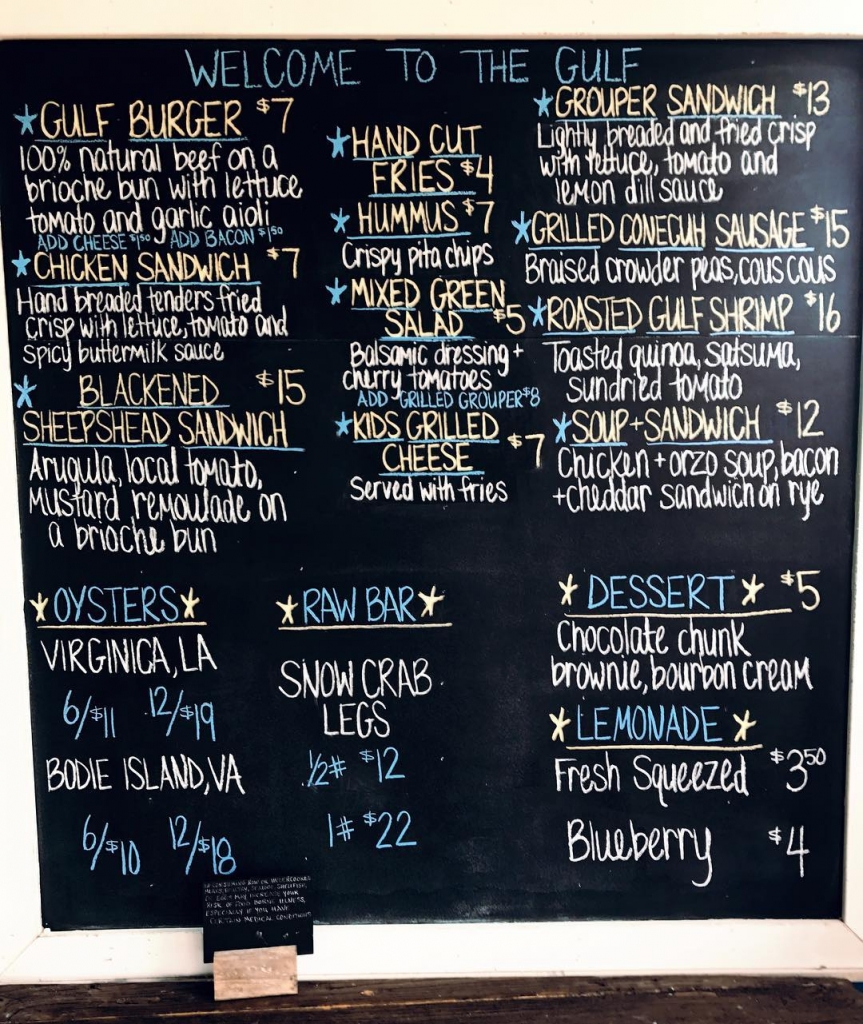 WELCOME TO THE GULF
*GULF BURGER $7
100% natural beef on a
brioche bun with lettuce
tomato and garlic aioli
ADD CHEESE $1.50 ADD BACON $1.50
*CHICKEN SANDWICH $7
Hand breaded tenders fried
crisp with lettuce, tomato and
spicy buttermilk sauce
* BLACKENED $15
SHEEPSHEAD SANDWICH
Arugula, local tomato,
mustard remoulade on
a brioche bun
*HAND CUT
FRIES $4
*HUMMUS $7
Crispy pita chips
*MIXED GREEN
SALAD $5
Balsamic dressing +
cherry tomatoes
ADD GRILLED GROUPER $8
*KIDS GRILLED
CHEESE $7
Served with fries
*GROUPER SANDWICH $13
Lightly breaded and fried crisp
with lettuce, tomato and
lemon dill sauce
*GRILLED CONECUH SAUSAGE $15
Braised crowder peas, cous cous
*ROASTED GULF SHRIMP $16
Toasted quinoa, satsuma,
sundried tomato
*SOUP+SANDWICH $12
Chicken + orzo soup, bacon
+cheddar sandwich on rye
*OYSTERS*
VIRGINICA, LA
6/$11 12/$19
BODIE ISLAND, VA
6/$10 12/$18
*RAW BAR*
SNOW CRAB
LEGS
1/2# $12
1# $22
* DESSERT * $5
Chocolate chunk
brownie, bourbon cream
*LEMONADE *
Fresh Squeezed $3.50
Blueberry $4
RISK OF FOOD BORNE ILLNESS,
ESPECIALLY IF YOU HAVE
CERTAIN MEDICAL CONDITIONS